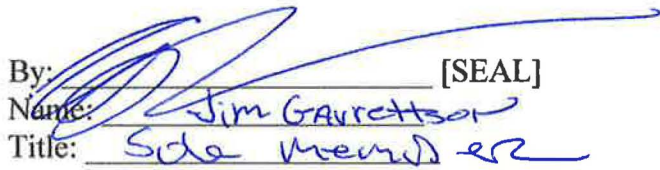 By: [SEAL]
Name: Jim Garrettson
Title: Sole Member